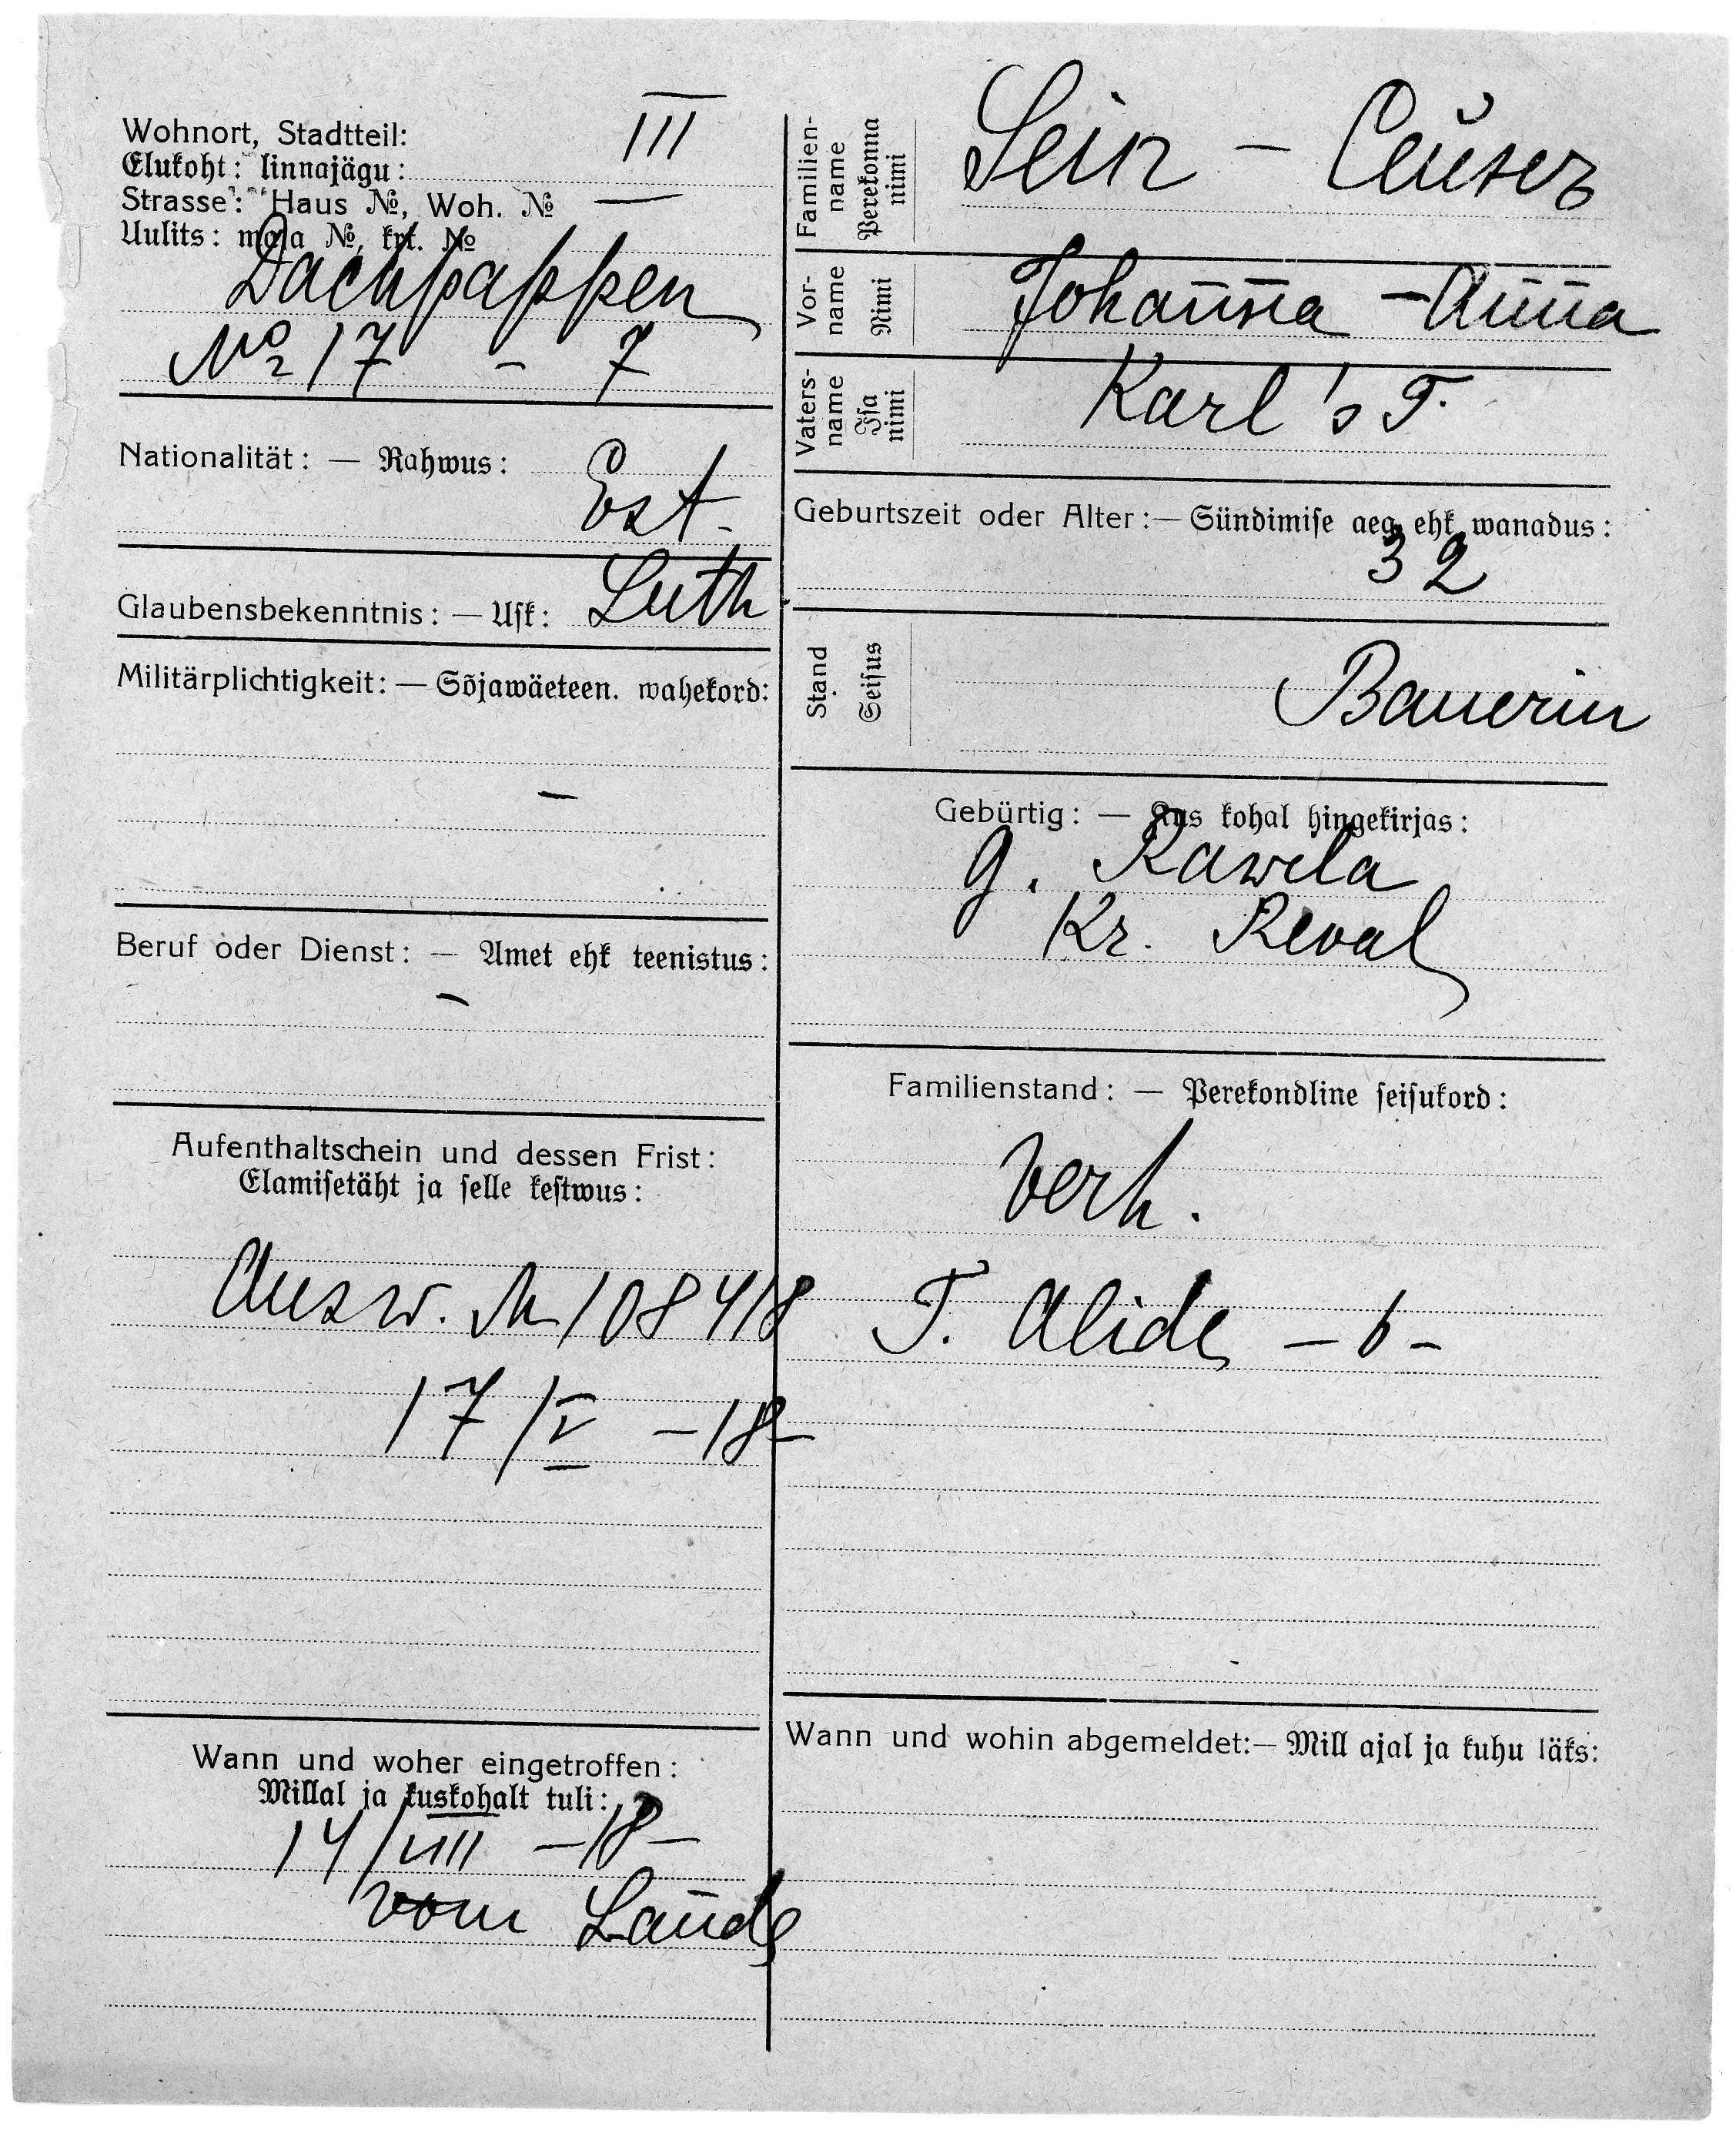 Wohnort, Stadtteil: III
Elukoht: linnajägu:
Strasse: Haus №, Woh. №
Uulits: maja №, krt. №
Dachpappen
№ 17 - 7
Nationalität: — Rahwus:
Est.
Glaubensbekenntnis: — Usk: Luth.
Militärplichtigkeit: — Sõjawäeteen. wahekord:
-
Beruf oder Dienst: — Amet ehk teenistus:
-
Aufenthaltschein und dessen Frist:
Elamisetäht ja selle kestwus:
Ausw. № 108418
17/V -18-
Wann und woher eingetroffen:
Millal ja kuskohalt tuli:
14/VIII -18-
vom Lande
Familien-
name
Perekonna
nimi
Sein -
Vor-
name
Nimi
Johanna - Anna
Vaters-
name
Isa
nimi
Karl's T.
Geburtszeit oder Alter: — Sündimise aeg ehk wanadus:
32
Stand
Seisus
Bauerin
Gebürtig: — Kus kohal hingekirjas:
G. Rawila
Kr. Reval
Familienstand: — Perekondline seisukord:
verh.
T. Alide - 6 -
Wann und wohin abgemeldet: — Mill ajal ja kuhu läks: